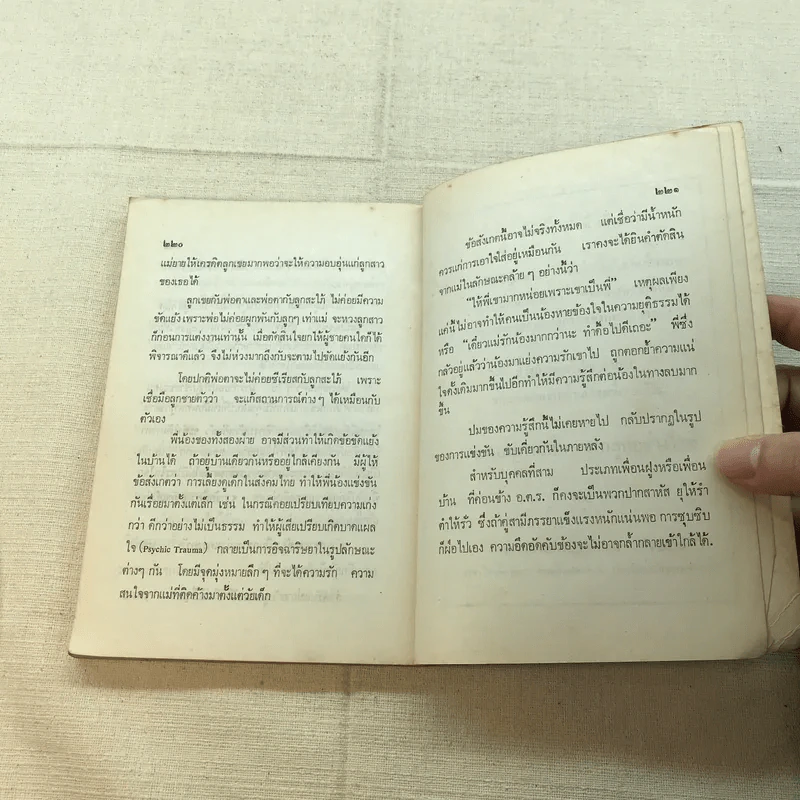 ๒๒๐
แม่ยายให้เครดิตลูกเขยมากพอว่าจะให้ความอบอุ่นแก่ลูกสาว
ของเธอได้
ลูกเขยกับพ่อตาและพ่อตากับลูกสะใภ้ ไม่ค่อยมีความ
ขัดแย้ง เพราะพ่อไม่ค่อยผูกพันกับลูกๆ เท่าแม่ จะหวงลูกสาว
ก็ก่อนการแต่งงานเท่านั้น เมื่อตัดสินใจยกให้ผู้ชายคนใดก็ได้
พิจารณาดีแล้ว จึงไม่ห่วงมากถึงกับจะตามไปขัดแย้งกันอีก
โดยปกติพ่อตาจะไม่ค่อยซีเรียสกับลูกสะใภ้ เพราะ
เชื่อมือลูกชายตัวว่า จะแก้สถานการณ์ต่างๆ ได้เหมือนกับ
ตัวเอง
พี่น้องของทั้งสองฝ่าย อาจมีส่วนทำให้เกิดข้อขัดแย้ง
ในบ้านได้ ถ้าอยู่บ้านเดียวกันหรืออยู่ใกล้เคียงกัน มีผู้ให้
ข้อสังเกตว่า การเลี้ยงดูเด็กในสังคมไทย ทำให้พี่น้องแข่งขัน
กันเรื่อยมาตั้งแต่เล็ก เช่น ในกรณีคอยเปรียบเทียบความเก่ง
กว่า ดีกว่าอย่างไม่เป็นธรรม ทำให้ผู้เสียเปรียบเกิดบาดแผล
ใจ (Psychic Trauma) กลายเป็นการอิจฉาริษยาในรูปลักษณะ
ต่างๆ กัน โดยมีจุดมุ่งหมายลึกๆ ที่จะได้ความรัก ความ
สนใจจากแม่ที่ติดค้างมาตั้งแต่วัยเด็ก
๒๒๑
ข้อสังเกตนี้อาจไม่จริงทั้งหมด แต่เชื่อว่ามีน้ำหนัก
ควรแก่การเอาใจใส่อยู่เหมือนกัน เราคงจะได้ยินคำตัดสิน
จากแม่ในลักษณะคล้ายๆ อย่างนี้ว่า
“ให้พี่เขามากหน่อยเพราะเขาเป็นพี่” เหตุผลเพียง
แค่นี้ไม่อาจทำให้คนเป็นน้องหายข้องใจในความยุติธรรมได้
หรือ “เดี๋ยวแม่รักน้องมากกว่านะ ทำดื้อไปดีเถอะ” พี่ซึ่ง
กลัวอยู่แล้วว่าน้องมาแย่งความรักเขาไป ถูกตอกย้ำความแน่
ใจดั้งเดิมมากขึ้นไปอีกทำให้มีความรู้สึกต่อน้องในทางลบมาก
ขึ้น
ปมของความรู้สึกนี้ไม่เคยหายไป กลับปรากฏในรูป
ของการแข่งขัน ขับเคี่ยวกันในภายหลัง
สำหรับบุคคลที่สาม ประเภทเพื่อนฝูงหรือเพื่อน
บ้าน ที่ค่อนข้าง อ.ต.ร. ก็คงจะเป็นพวกปากสาหัส ยุให้รำ
ตำให้รั่ว ซึ่งถ้าคู่สามีภรรยาแข็งแรงหนักแน่นพอ การซุบซิบ
ก็ฝ่อไปเอง ความอึดอัดคับข้องจะไม่อาจกล้ำกลายเข้าใกล้ได้.